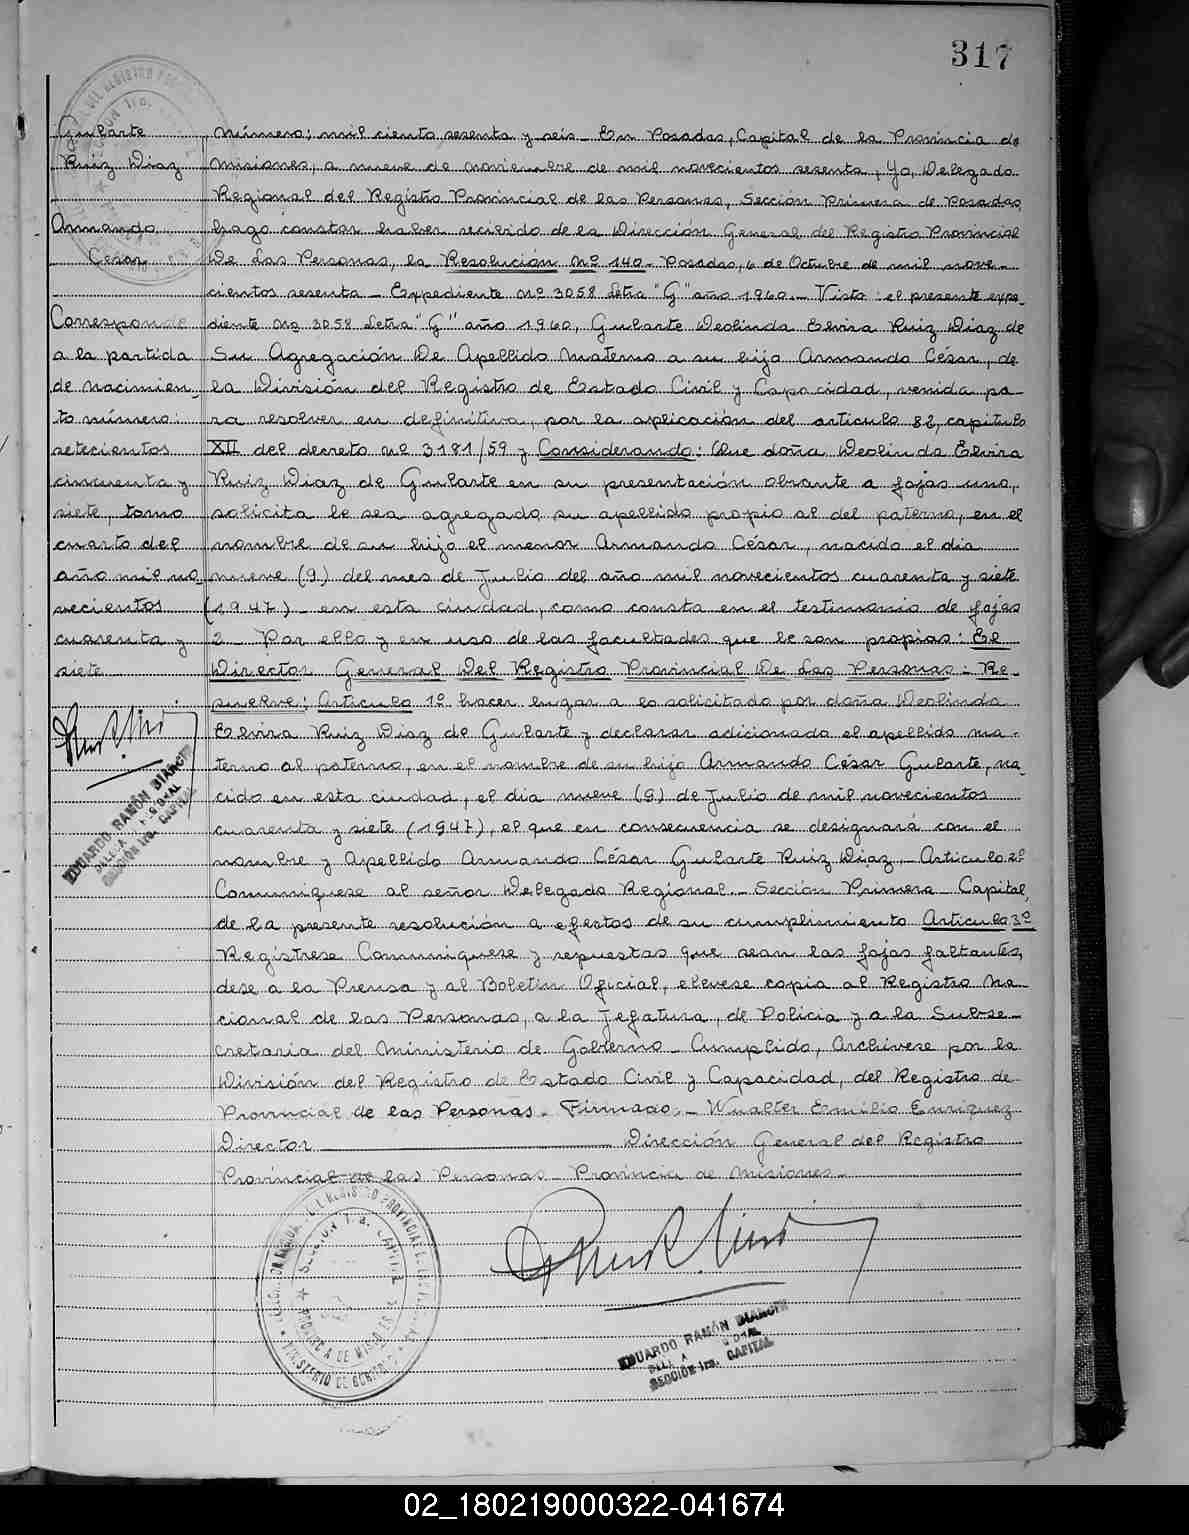 317
Gularte
Ruiz Diaz
Armando
César
Corresponde
a la partida
de nacimien-
to número:
setecientos
cincuenta y
siete, tomo
cuarto del
año mil no-
vecientos
cuarenta y
siete
EDUARDO RAMÓN BIANCHI
SECCIÓN 1ra. CAPITAL
Número: mil ciento sesenta y seis - En Posadas, Capital de la Provincia de
Misiones, a nueve de noviembre de mil novecientos sesenta, Yo, Delegado
Regional del Registro Provincial de las Personas, Sección Primera de Posadas,
hago constar haber recibido de la Dirección General del Registro Provincial
De Las Personas, la Resolución Nº 140.- Posadas, 6 de Octubre de mil nove-
cientos sesenta - Expediente Nº 3058 Letra "G" año 1960.- Visto: el presente expe-
diente Nº 3058 Letra "G" año 1960, Gularte Deolinda Elvira Ruiz Diaz de
Su Agregación De Apellido Materno a su hijo Armando César, de
la División del Registro de Estado Civil y Capacidad, venida pa-
ra resolver en definitiva, por la aplicación del articulo 82, capitulo
XII del decreto Nº 3181/59 y Considerando: Que doña Deolinda Elvira
Ruiz Diaz de Gularte en su presentación obrante a fojas uno,
solicita le sea agregado su apellido propio al del paterno, en el
nombre de su hijo el menor Armando César, nacido el dia
nueve (9) del mes de Julio del año mil novecientos cuarenta y siete
(1947) - en esta ciudad, como consta en el testimonio de fojas
2 - Por ello y en uso de las facultades que le son propias: El
Director General Del Registro Provincial De Las Personas - Re-
suelve: Articulo 1º hacer lugar a lo solicitado por doña Deolinda
Elvira Ruiz Diaz de Gularte y declarar adicionado el apellido ma-
terno al paterno, en el nombre de su hijo Armando César Gularte, na-
cido en esta ciudad, el dia nueve (9) de Julio de mil novecientos
cuarenta y siete (1947), el que en consecuencia se designará con el
nombre y Apellido Armando César Gularte Ruiz Diaz - Articulo 2º
Comuniquese al señor Delegado Regional - Sección Primera - Capital,
de la presente resolución a efectos de su cumplimiento Articulo 3º
Registrese Comuniquese y repuestas que sean las fojas faltantes,
dese a la Prensa y al Boletin Oficial, elevese copia al Registro Na-
cional de las Personas, a la Jefatura, de Policia y a la Subse-
cretaria del Ministerio de Gobierno - Cumplido, Archivese por la
División del Registro de Estado Civil y Capacidad, del Registro de
Provincial de las Personas. Firmado.- Wualter Ermilio Enriquez
Director Dirección General del Registro
Provincial de las Personas - Provincia de Misiones -
EDUARDO RAMÓN BIANCHI
SECCIÓN 1ra. CAPITAL
02_180219000322-041674